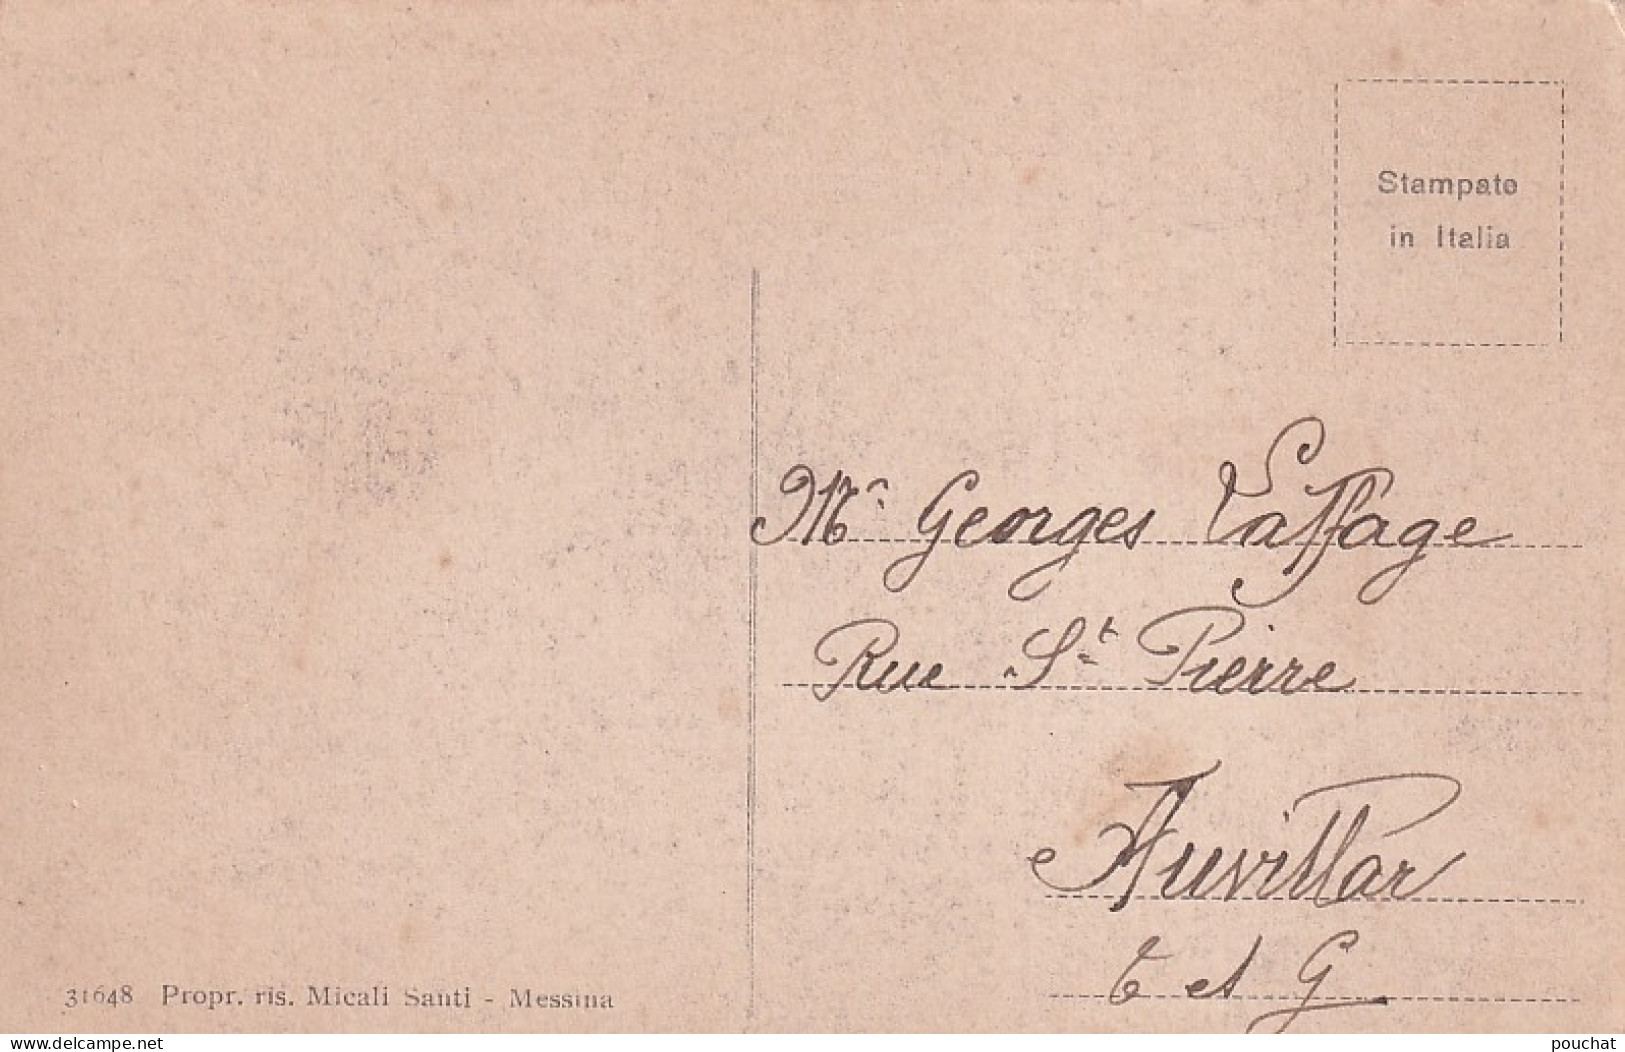 Stampato
in Italia
Mr Georges Laffage
Rue St Pierre
Auvillar
T et G
31648 Propr. ris. Micali Santi - Messina
www.delcampe.net
pouchat